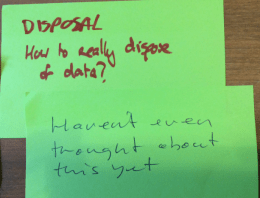 DISPOSAL
How to really dispose
of data?
Haven't even
thought about
this yet